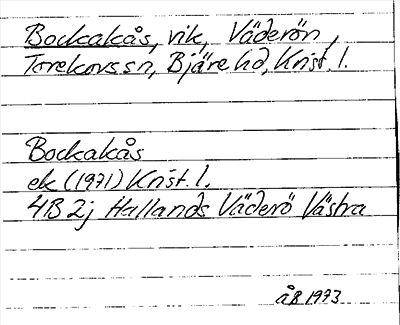 Bockakås, vik, Väderön,
Torekovs sn, Bjäre hd, Krist. l.
Bockakås
ek (1971) Krist. l.
4B 2j Hallands Väderö Västra
åB 1973